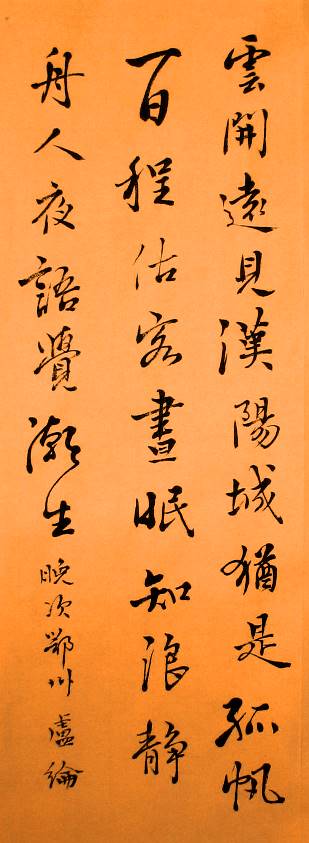 雲開遠見漢陽城猶是孤帆
一日程估客晝眠知浪静
舟人夜語覺潮生晚次鄂州盧綸